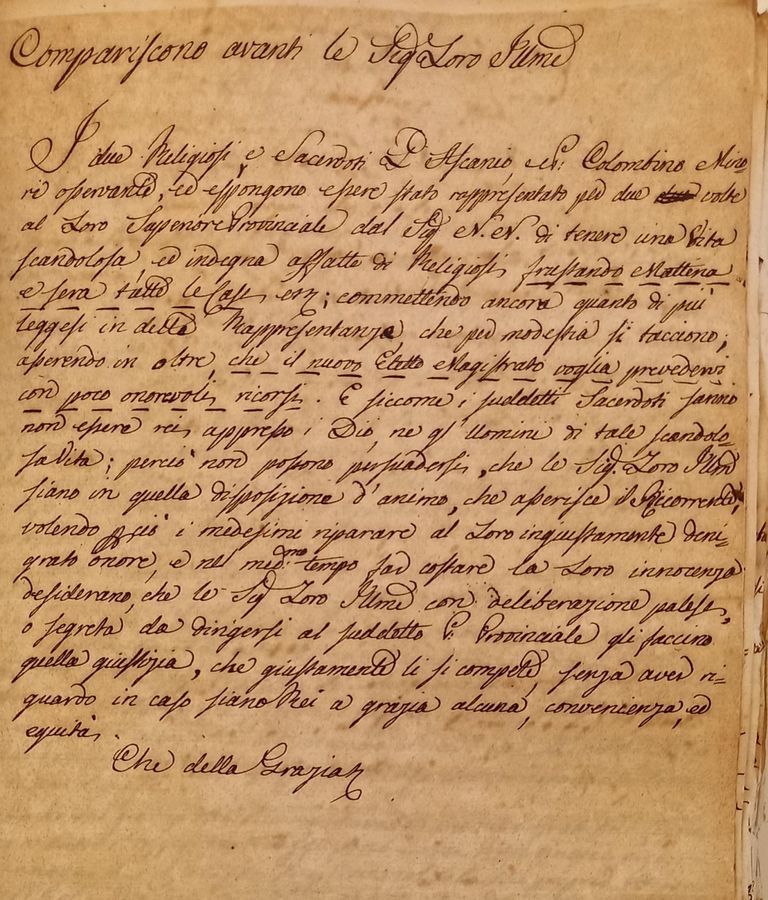 Compariscono avanti le Sig.e Loro Illme
I due Religiosi, e Sacerdoti P. Ascanio, e P: Colombino Mino-
ri osservanti, ed espongono essere stato rappresentato per due volte
al Loro Superiore Provinciale dal Sig.r N. N. di tenere una Vita
scandolosa ed indegna affatto di Religiosi, frustando Mattina
e sera tutte le Case etz; commettendo ancora quanto di più
leggesi in detta Rappresentanza, che per modestia si tacciono;
asserendo in oltre, che il nuovo Eletto Magistrato voglia prevedervi
con poco onorevoli ricorsi. E siccome i suddetti Sacerdoti sanno
non essere rei appresso i Dio, ne gl' Uomini di tale scandolo-
sa Vita; perciò non possono persuadersi, che le Sig.e Loro Illme
siano in quella disposizione d'animo, che asserisce il Ricorrente,
volendo perciò i medesimi riparare al Loro ingiustamente deni-
grato onore, e nel med:mo tempo far costare la Loro innocenza
desiderano, che le Sig.e Loro Illme con deliberazione palese,
o segreta da dirigersi al suddetto P: Provinciale gli faccino
quella giustizia, che giustamente li si compete, senza aver ri-
guardo in caso siano Rei a grazia alcuna, convenienza, ed
equità.
Che della Grazia etz